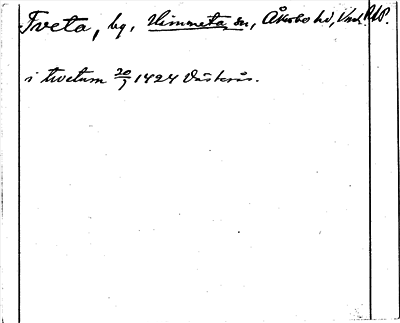 Tveta, by, Himmeta sn, Åkerbo hd, Vml. RAP.
i twetum 20/7 1424 Västerås.